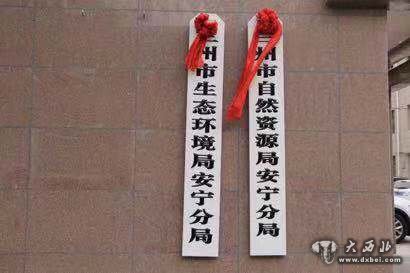 兰州市生态环境局安宁分局
兰州市自然资源局安宁分局
大西北
www.dxbei.com